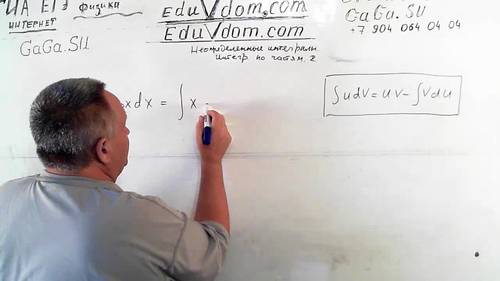 НА ЕГЭ физика
ИНТЕРНЕТ
GaGa.SU
EduVdom.com
EduVdom.com
Неопределенные интегралы
Интегр по частям. 2
GaGa.SU
+7 904 064 04 04
xdx = ∫x
∫udV = uV - ∫Vdu